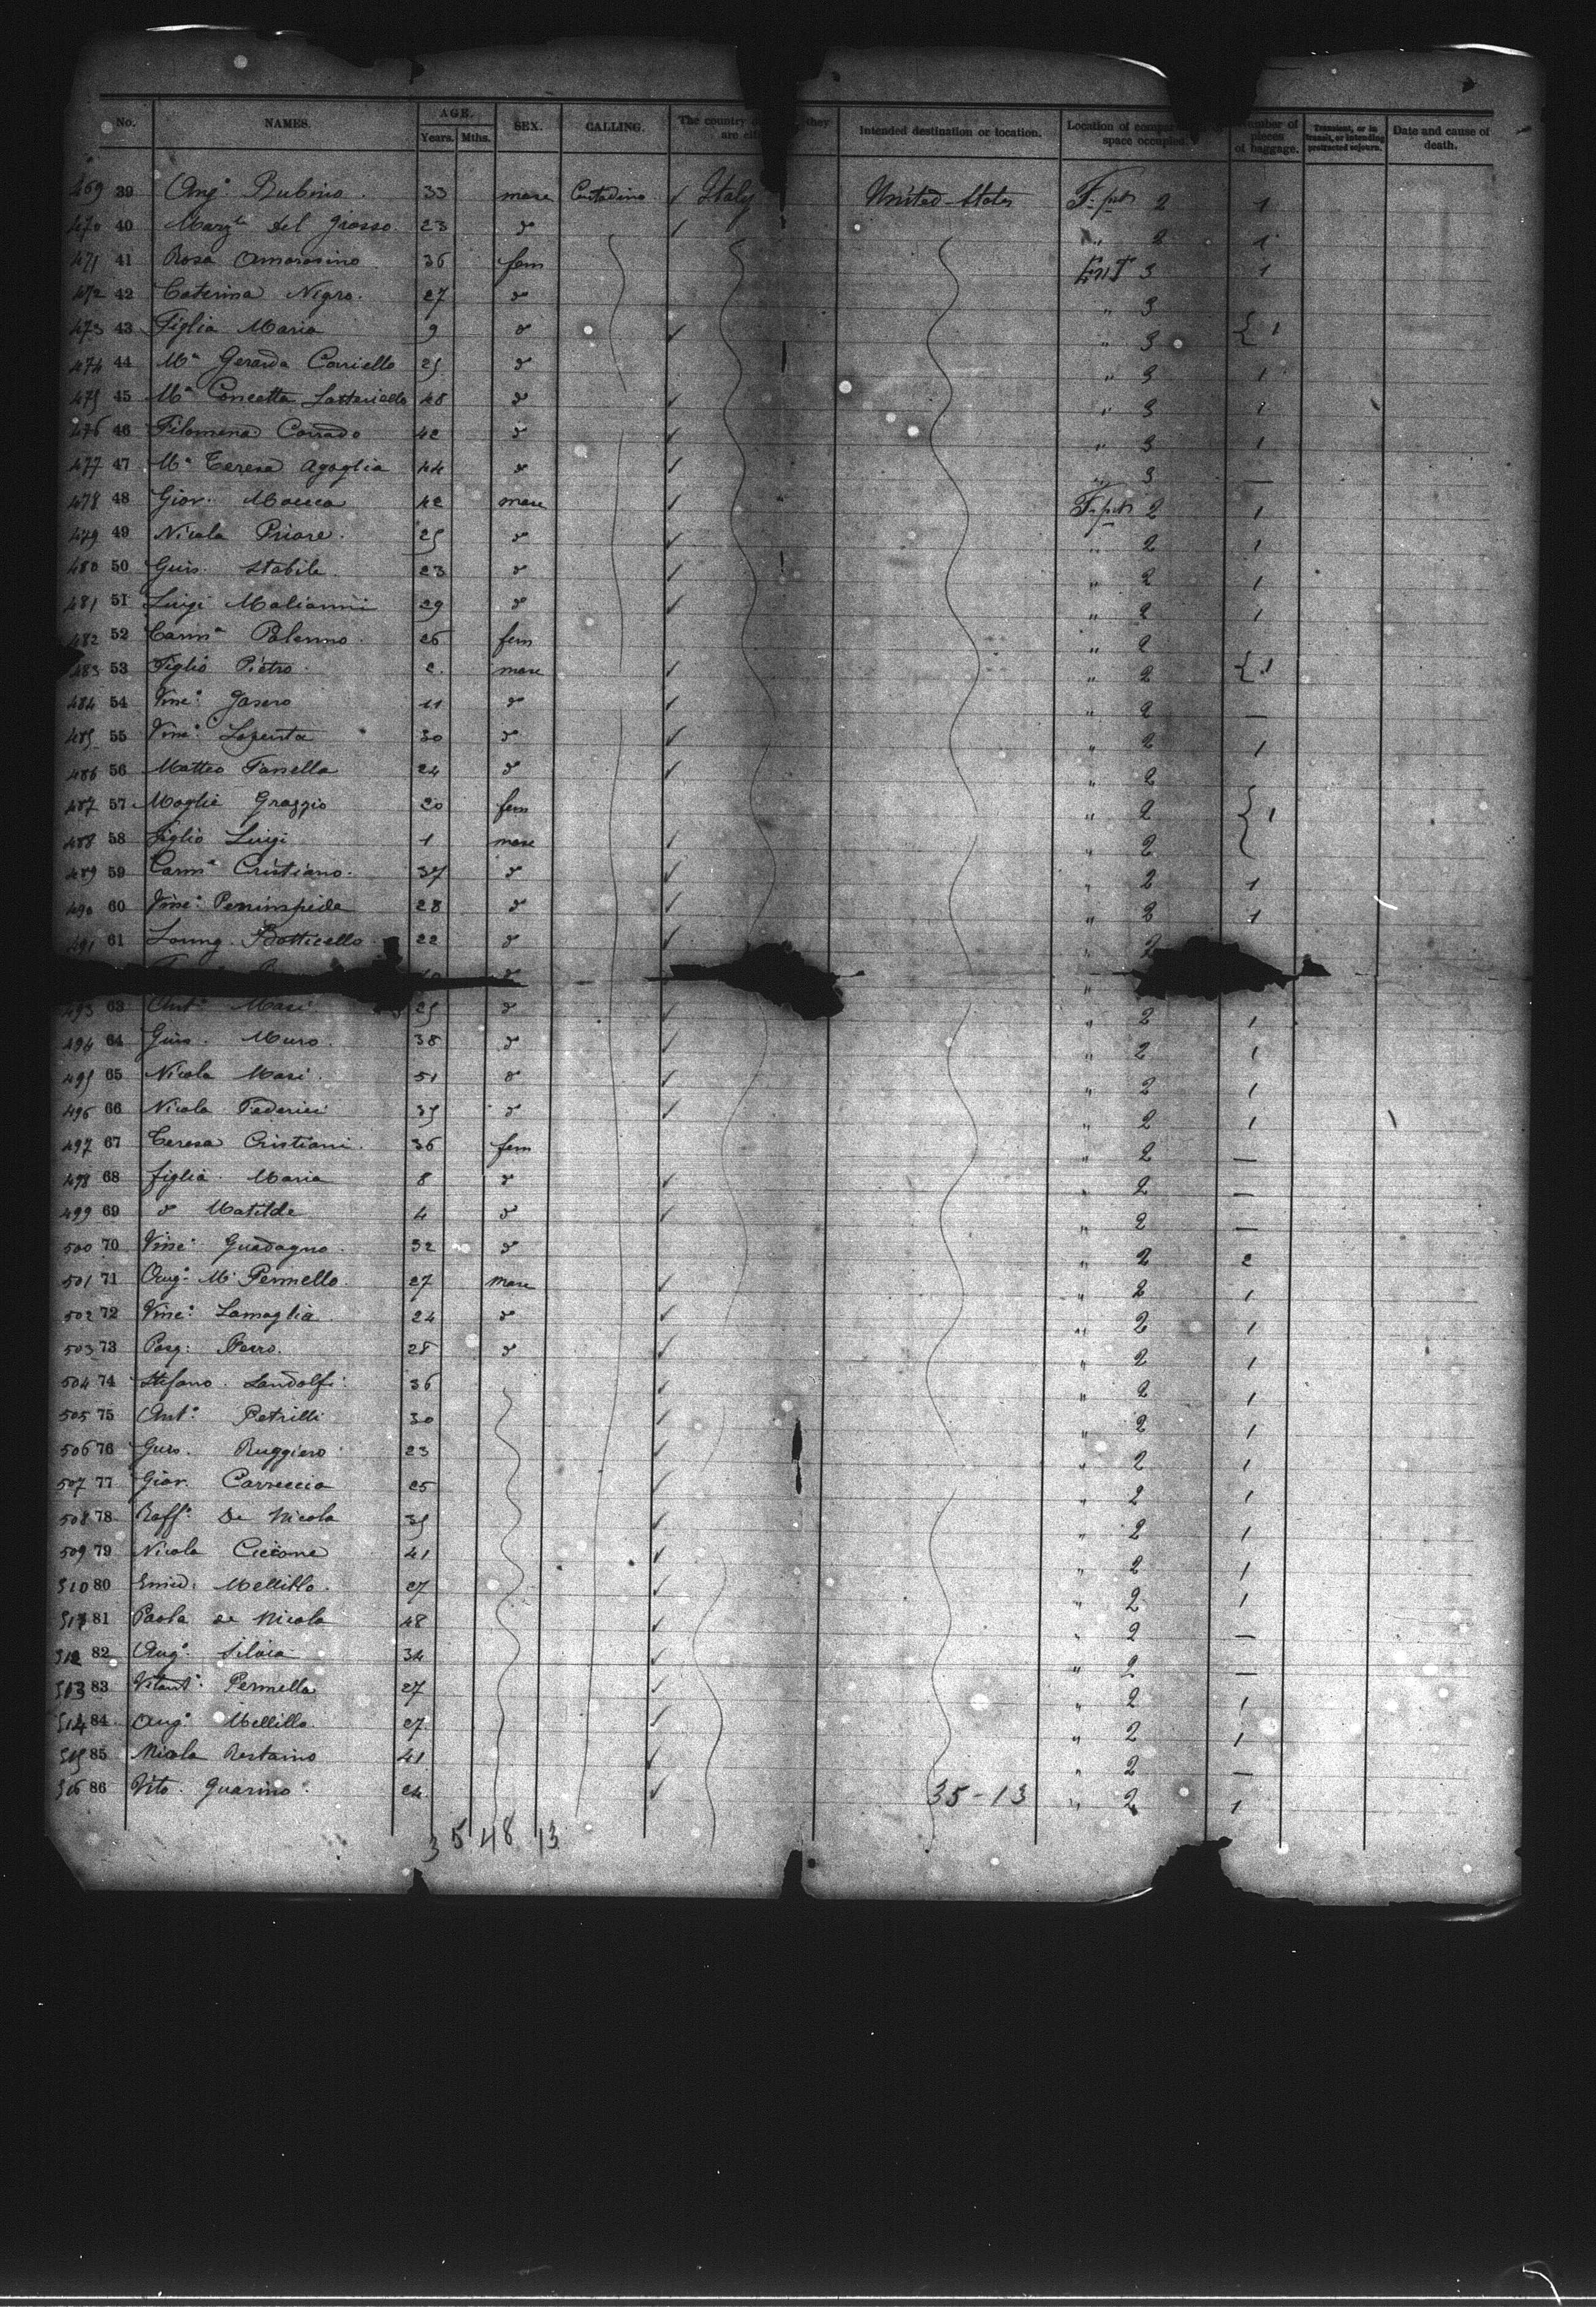 No. NAMES. AGE. Years. Mths. SEX. CALLING. The country they are Intended destination or location. Location of space occupied. Number of pieces of baggage. Transient, or in transit, or intending protracted sojourn. Date and cause of death.
469 39 Ang.o Rubino. 33 mare Contadino ✓ Italy United-States 2 1
470 40 del Grosso 23 d ✓ " 2 1
471 41 Rosa Amorosino 36 fem 3 1
472 42 Caterina Nigro. 27 d " 3
473 43 Figlia Maria 9 d ✓ " 3 { 1
474 44 M.a Gerarda Corriello 25 d " 3 1
475 45 M.a Concetta 48 d ✓ " 3 1
476 46 Filomena Corrado 42 d ✓ " 3 1
477 47 M.a Teresa Agoglia 44 d ✓ " 3 —
478 48 Giov. Mocca 42 mare ✓ 2 1
479 49 Nicola Priore. 25 d ✓ " 2 1
480 50 Gius. Stabile. 23 d ✓ " 2 1
481 51 Luigi 29 d ✓ " 2 1
482 52 Carm.a Palermo. 26 fem " 2
483 53 Figlio Pietro. 2. mare ✓ " 2 { 1
484 54 Vinc.o 11 d ✓ " 2 —
485 55 Vinc.o Lapenta 30 d ✓ " 2 1
486 56 Matteo 24 d ✓ " 2
487 57 Moglie 20 fem " 2 { 1
488 58 figlio Luigi 1 mare ✓ " 2
489 59 Carm.o Cristiano. 37 d ✓ " 2 1
490 60 Vinc.o 28 d ✓ " 2 1
491 61 Botticello 22 d ✓ " 2
d "
493 63 Ant.o Masi. 25 d ✓ " 2 1
494 64 Gius. Muro. 38 d ✓ " 2 1
495 65 Nicola Masi. 51 d ✓ " 2 1
496 66 Nicola Federici 35 d ✓ " 2 1
497 67 Teresa Cristiani. 36 fem " 2 —
498 68 figlia. Maria 8 d ✓ " 2 —
499 69 d Matilde 4 d ✓ " 2 —
500 70 Vinc.a Guadagno. 32 d " 2 2
501 71 Ang.o M.a 27 mare ✓ " 2 1
502 72 Vinc.o Lamaglia. 24 d ✓ " 2 1
503 73 Pasq: 28 d ✓ " 2 1
504 74 Stefano. Landolfi. 36 ✓ " 2 1
505 75 Ant.o Petrilli 30 ✓ " 2 1
506 76 Gius. Ruggiero 23 ✓ " 2 1
507 77 Giov. Carreccia 25 ✓ " 2 1
508 78 Raff.o De Nicola 35 ✓ " 2 1
509 79 Nicola Ciccone 41 ✓ " 2 1
510 80 Emid. Mellillo. 27 ✓ " 2 1
511 81 Paolo de Nicola 48 ✓ " 2 —
512 82 Ang.o Silvia 34 ✓ " 2 —
513 83 27 ✓ " 2 1
514 84 Ang.o Mellillo. 27 ✓ " 2 1
515 85 Nicola Restaino 41 ✓ " 2 —
516 86 Vito. Guarino. 24 ✓ 35-13 " 2 1
35 48 13